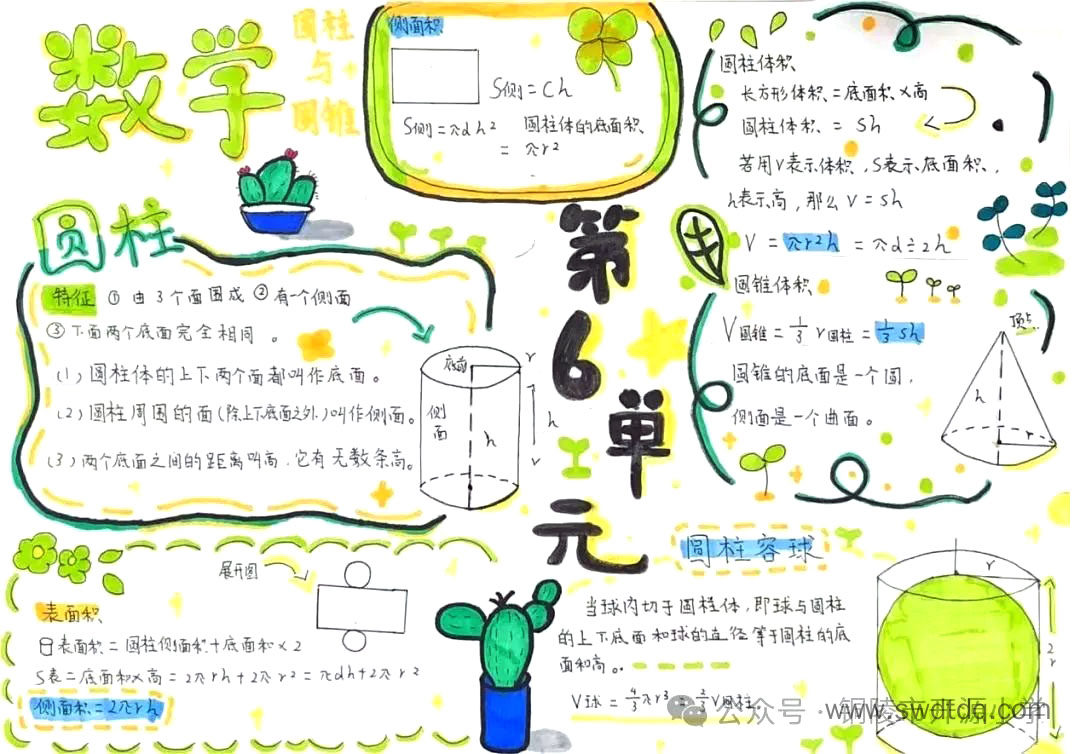 数学
圆柱
与
圆锥
侧面积
S侧=Ch
S侧=πdh² 圆柱体的底面积
=πr²
圆柱体积
长方形体积=底面积×高
圆柱体积=Sh
若用V表示体积,S表示底面积,
h表示高,那么V=Sh
V=πr²h=πd÷2h
圆柱
特征 ①由3个面围成 ②有一个侧面
③下面两个底面完全相同。
(1)圆柱体的上下两个面都叫作底面。
(2)圆柱周围的面(除上下底面之外)叫作侧面。
(3)两个底面之间的距离叫高,它有无数条高。
底面
r
侧面
h
h
第6单元
圆锥体积
V圆锥=⅓r圆柱=⅓Sh
圆锥的底面是一个圆,
侧面是一个曲面。
顶点
h
r
展开图
表面积
表面积=圆柱侧面积+底面积×2
S表=底面积×高=2πrh+2πr²=πdh+2πr²
侧面积=2πrh
圆柱容球
当球内切于圆柱体,即球与圆柱
的上下底面和球的直径等于圆柱的底
面和高。
V球=4/3πr³=2/3V圆柱
r
2r
公众号·铜陵市开源小学
www.swdtdq.com